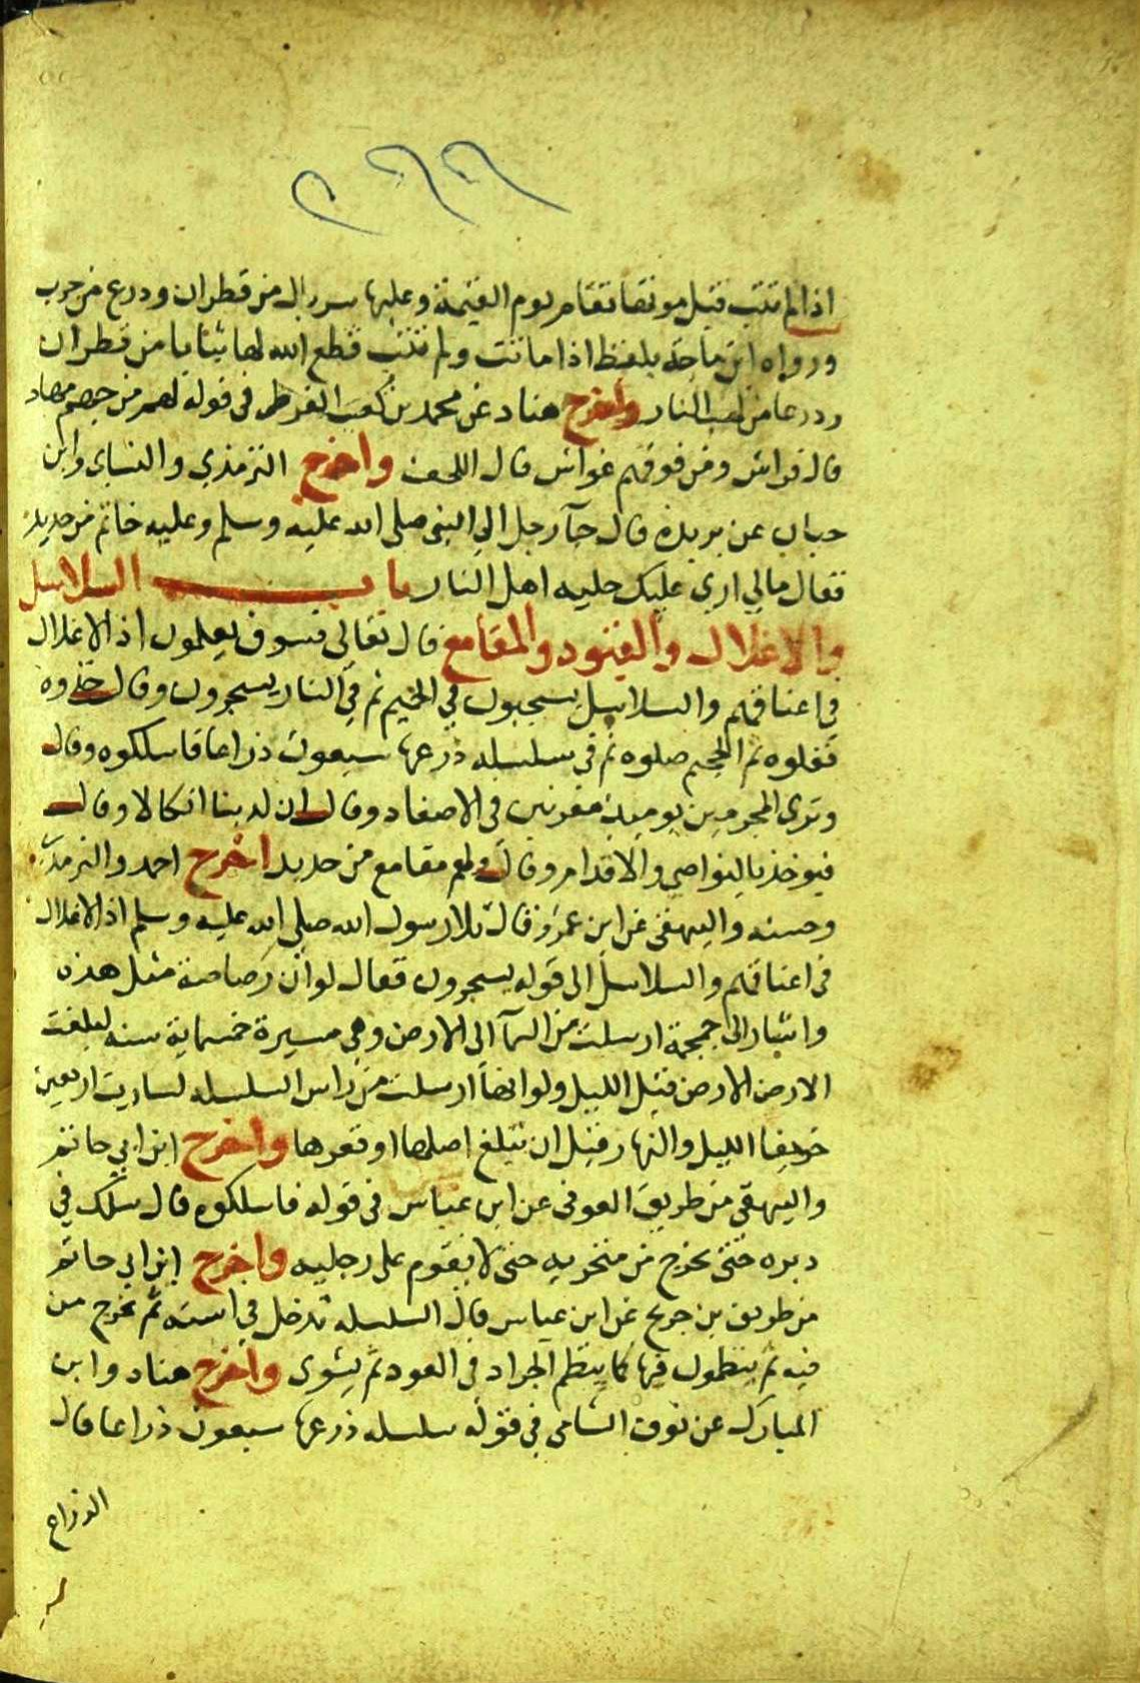 ٢٦٦
اذا لم تتب قبل موتها تقام يوم القيمة وعليها سربال من قطران ودرع من جرب
ورواه ابن ماجة بلفظ اذا ماتت ولم تتب قطع الله لها ثيابا من قطران
ودرعا من لهب النار واخرج هناد عن محمد بن كعب القرظي في قوله لهم من جهنم مهاد
قال فراش ومن فوقهم غواش قال اللحف واخرج الترمذي والنساي وابن
حبان عن بريدة قال جآ رجل الي النبي صلي الله عليه وسلم وعليه خاتم من حديد
فقال مالي اري عليك حليه اهل النار باب السلاسل
والاغلال والقيود والمقامع قال تعالى فسوف يعلمون اذ الاغلال
في اعناقهم والسلاسل يسحبون في الحميم ثم في النار يسجرون وقال خذوه
فغلوه ثم الجحيم صلوه ثم في سلسله ذرعها سبعون ذراعا فاسلكوه وقال
وتري المجرمين يوميذ مقرنين في الاصفاد وقال ان لدينا انكالا وقال
فيوخذ بالنواصي والاقدام وقال ولهم مقامع من حديد اخرج احمد والترمذي
وحسنه والبيهقي عن ابن عمرو قال تلا رسول الله صلي الله عليه وسلم اذ الاغلال
في اعناقهم والسلاسل الي قوله يسجرون فقال لو ان رصاصة مثل هذه
واشار الي جمجمة ارسلت من السمآ الي الارض وهي مسيرة خمسماية سنه لبلغت
الارض الارض قبل الليل ولو انها ارسلت من راس السلسله لسارت اربعين
خريفا الليل والنهار قبل ان تبلغ اصلها او قعرها واخرج ابن ابي حاتم
والبيهقي من طريق العوفي عن ابن عباس في قوله فاسلكوه قال تسلك في
دبره حتى تخرج من منخريه حتى لا يقوم على رجليه واخرج ابن ابي حاتم
من طريق بن جريج عن ابن عباس قال السلسله تدخل في استه ثم تخرج من
فيه ثم ينظمون فيها كما ينظم الجراد في العود ثم يشوى واخرج هناد وابن
المبارك عن نوف الشامي في قوله سلسله ذرعها سبعون ذراعا قال
الذراع